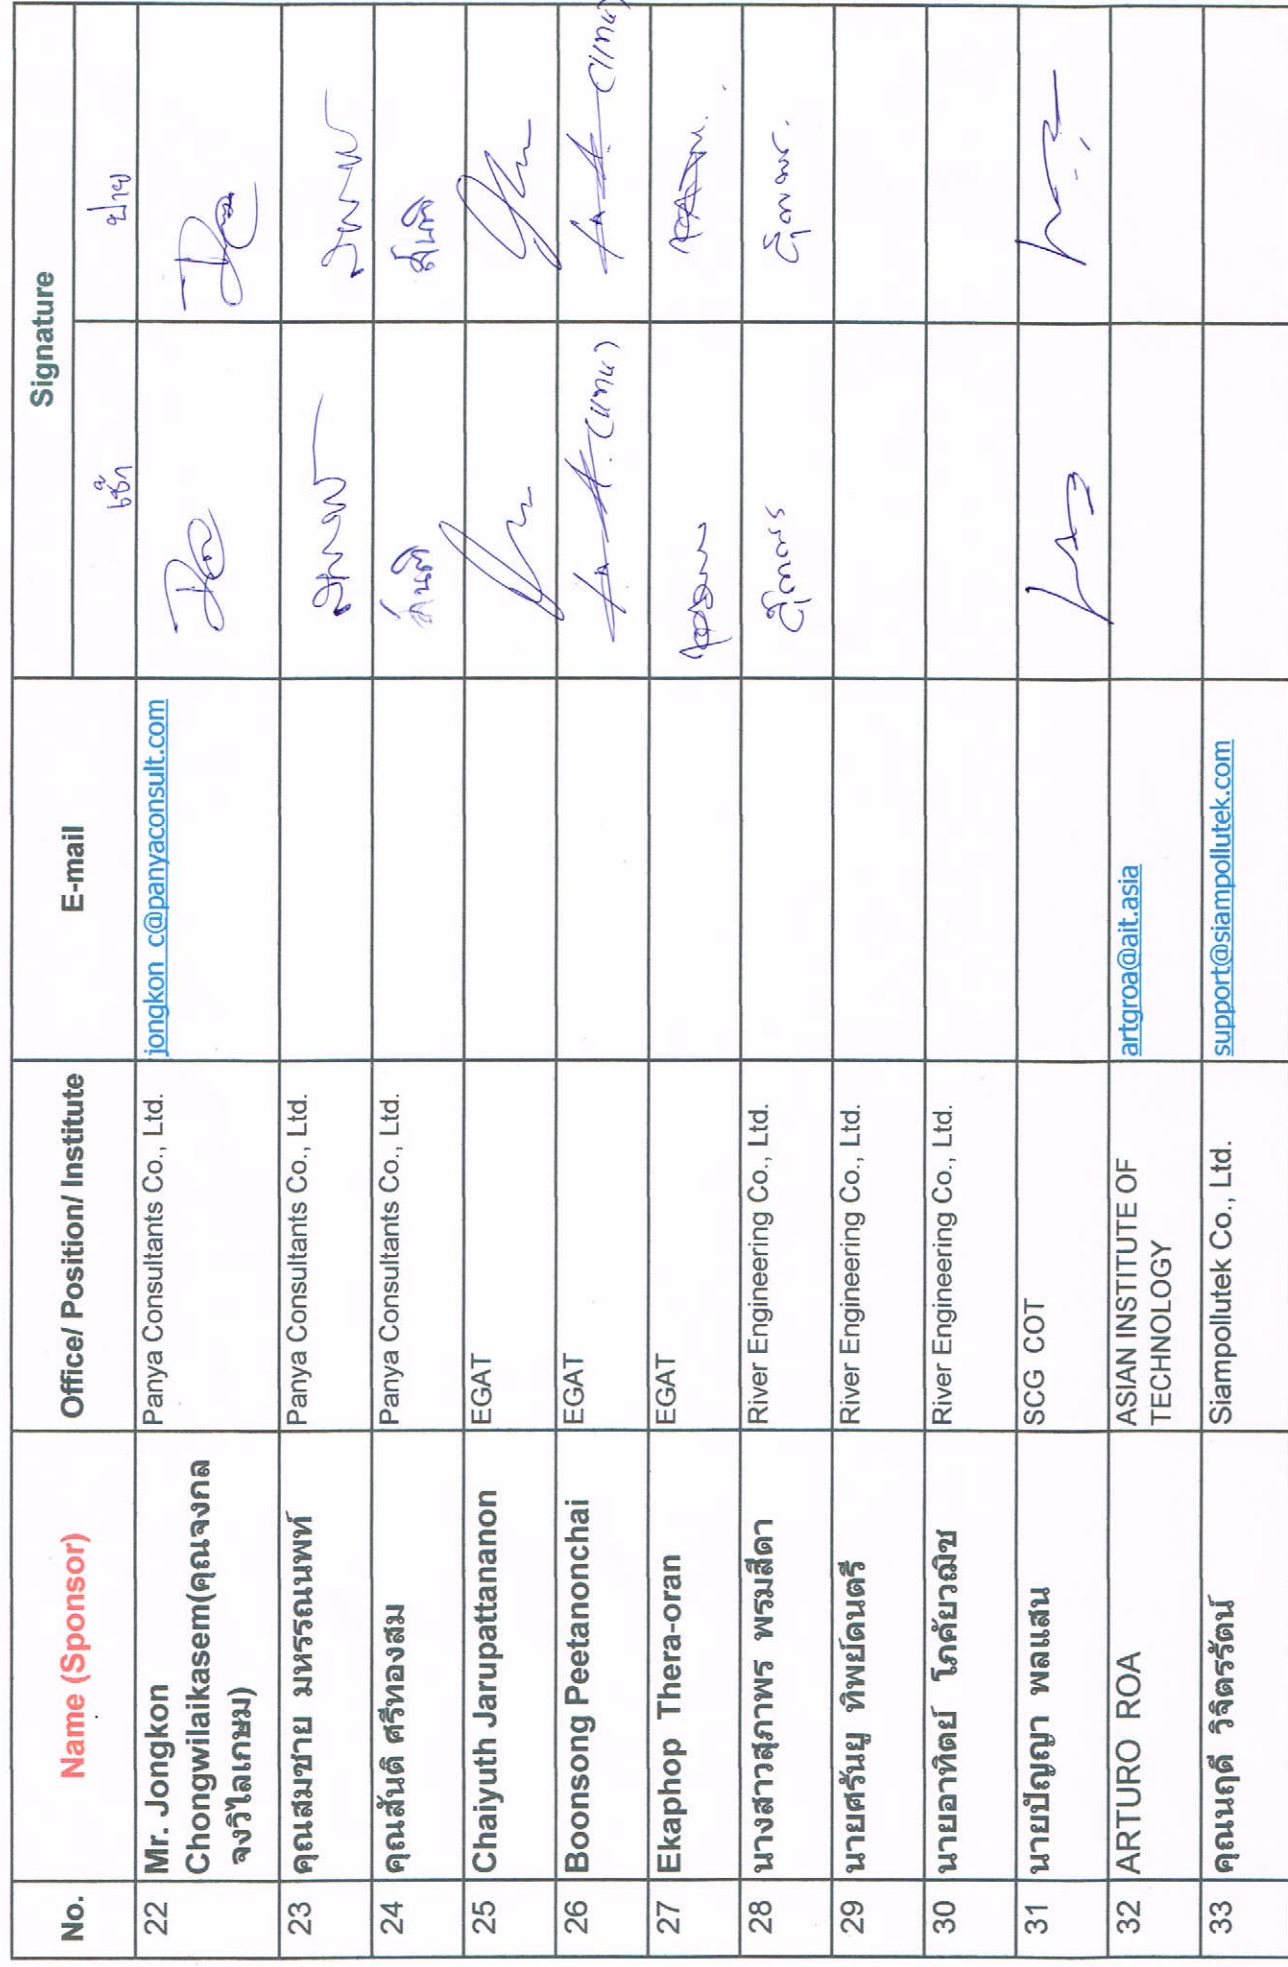 No. Name (Sponsor) Office/ Position/ Institute E-mail Signature
เช้า บ่าย
22 Mr. Jongkon Panya Consultants Co., Ltd. jongkon_c@panyaconsult.com
Chongwilaikasem(คุณจงกล
จงวิไลเกษม)
23 คุณสมชาย มหรรณนพท์ Panya Consultants Co., Ltd.
24 คุณสันติ ศรีทองสม Panya Consultants Co., Ltd. สันติ สันติ
25 Chaiyuth Jarupattananon EGAT
26 Boonsong Peetanonchai EGAT (แทน) (แทน)
27 Ekaphop Thera-oran EGAT
28 นางสาวสุภาพร พรมสีดา River Engineering Co., Ltd.
29 นายศรันยู ทิพย์ดนตรี River Engineering Co., Ltd.
30 นายอาทิตย์ โภคัยวฒิช River Engineering Co., Ltd.
31 นายปัญญา พลแสน SCG COT
32 ARTURO ROA ASIAN INSTITUTE OF artgroa@ait.asia
TECHNOLOGY
33 คุณนฤดี วิจิตรรัตน์ Siampollutek Co., Ltd. support@siampollutek.com